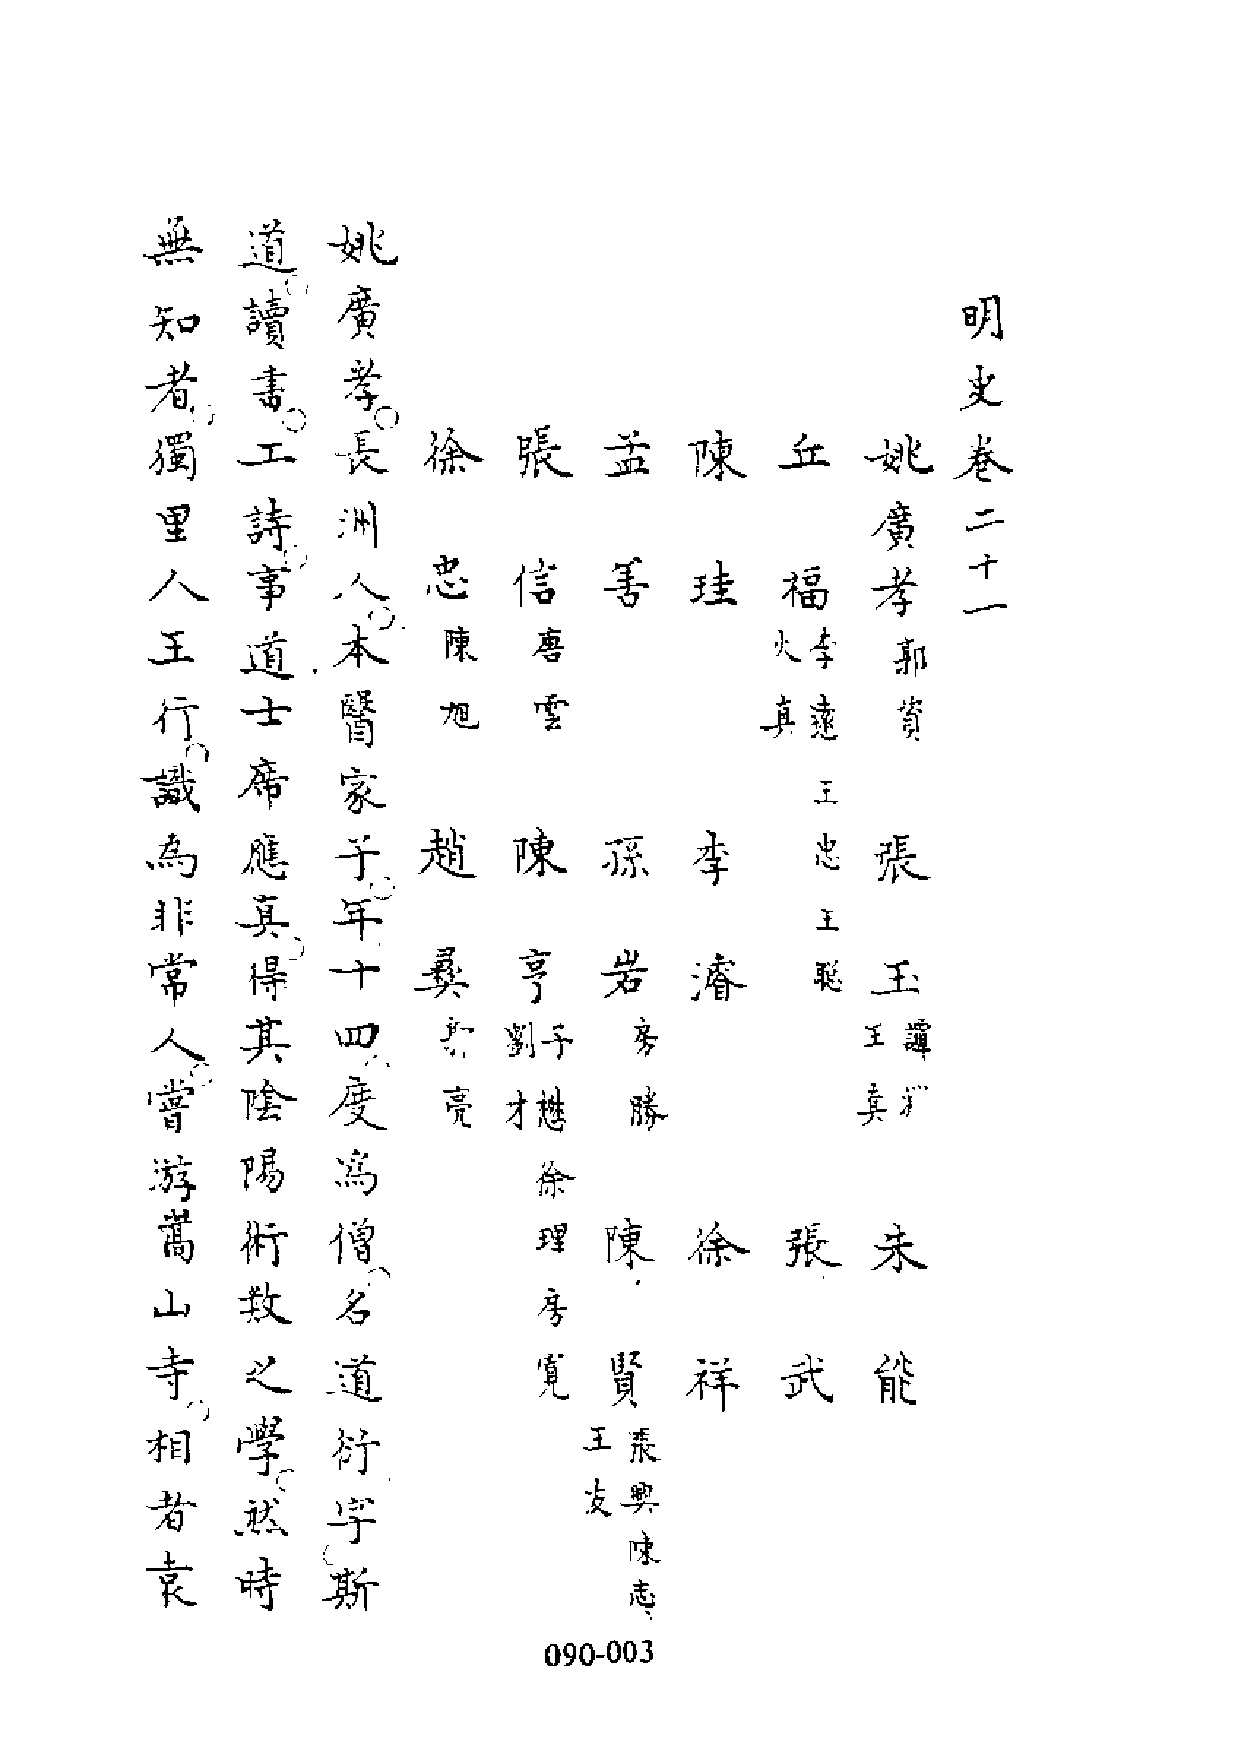 明史卷二十一
姚廣孝 郭資 張玉 譚 王真 朱能
丘福 李遠 火真 王忠 王聰 張武
陳珪 李濬 徐祥
孟善 孫岩 房勝 陳賢 張興 陳志 王友
張信 唐雲 陳亨 子懋 劉才 徐理 房寬
徐忠 陳旭 趙彝 亮
姚廣孝長洲人本醫家子年十四度為僧名道衍字斯
道讀書工詩事道士席應真得其陰陽術數之學然時
無知者獨里人王行識為非常人嘗游嵩山寺相者袁
090-003